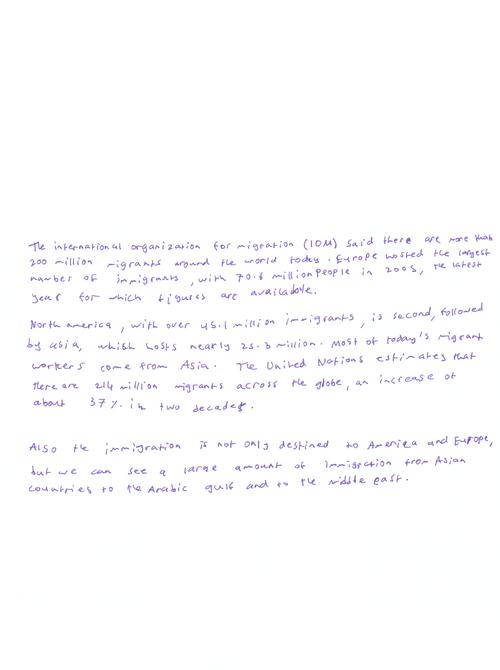 The international organization for migration (IOM) said there are more than
200 million migrants around the world today. Europe hosted the largest
number of immigrants, with 70.6 million people in 2005, the latest
year for which figures are available.
North america, with over 45.1 million immigrants, is second, followed
by asia, which hosts nearly 25.3 million. Most of today's migrant
workers come from Asia. The United Nations estimates that
there are 214 million migrants across the globe, an increase of
about 37% in two decades.
Also the immigration is not only destined to America and Europe,
but we can see a large amount of immigration from Asian
countries to the Arabic gulf and to the middle east.